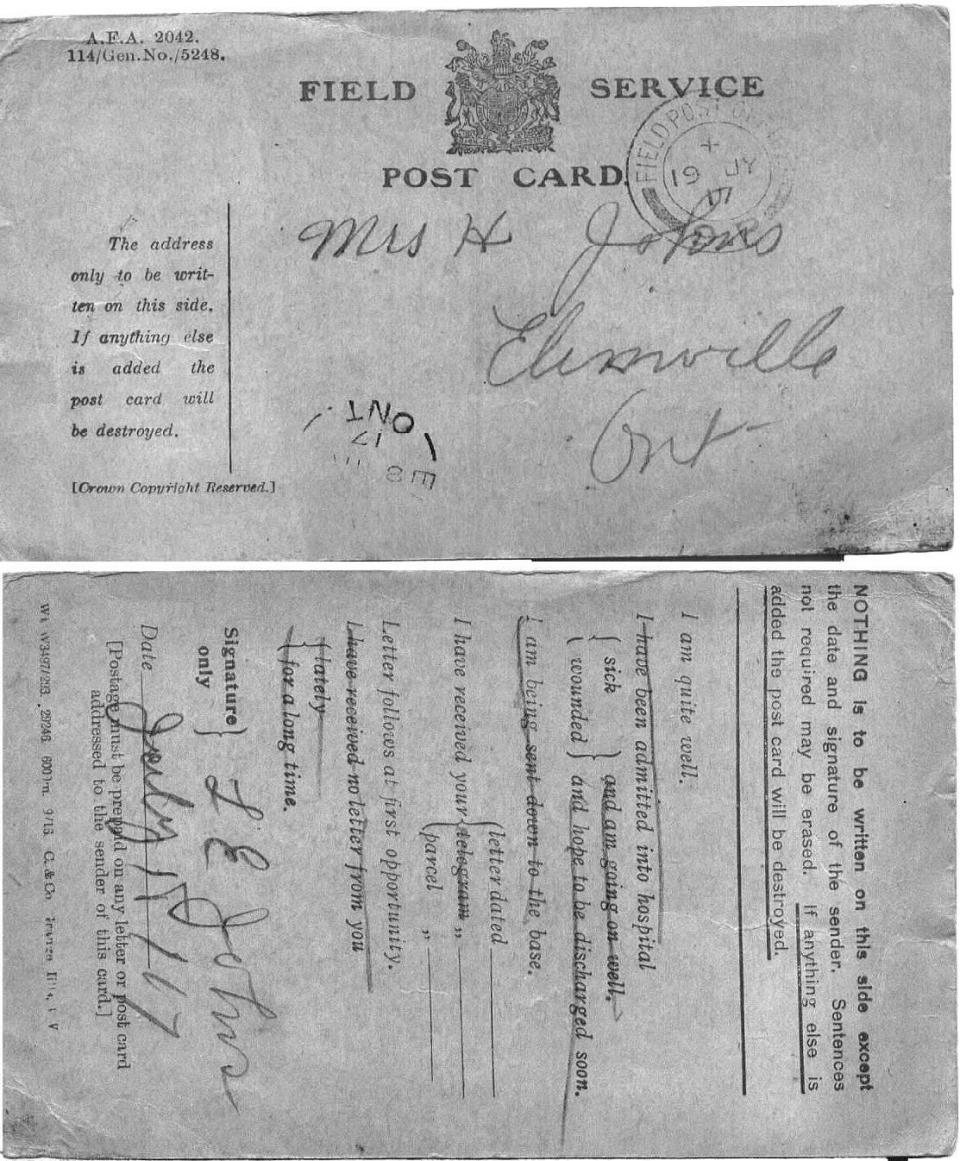 A.F.A. 2042.
114/Gen.No./5248.
FIELD SERVICE
POST CARD.
FIELD POST OFFICE
19 JY
17
The address
only to be writ-
ten on this side.
If anything else
is added the
post card will
be destroyed.
[Crown Copyright Reserved.]
Mrs H Johns
Elimville
Ont
ONT
17
NOTHING is to be written on this side except
the date and signature of the sender. Sentences
not required may be erased. If anything else is
added the post card will be destroyed.
I am quite well.
I have been admitted into hospital
{ sick } and am going on well.
{ wounded } and hope to be discharged soon.
I am being sent down to the base.
I have received your { letter dated
telegram „
parcel „
Letter follows at first opportunity.
I have received no letter from you
{ lately
{ for a long time.
Signature
only } L E Johns
Date July 17/17
[Postage must be prepaid on any letter or post card
addressed to the sender of this card.]